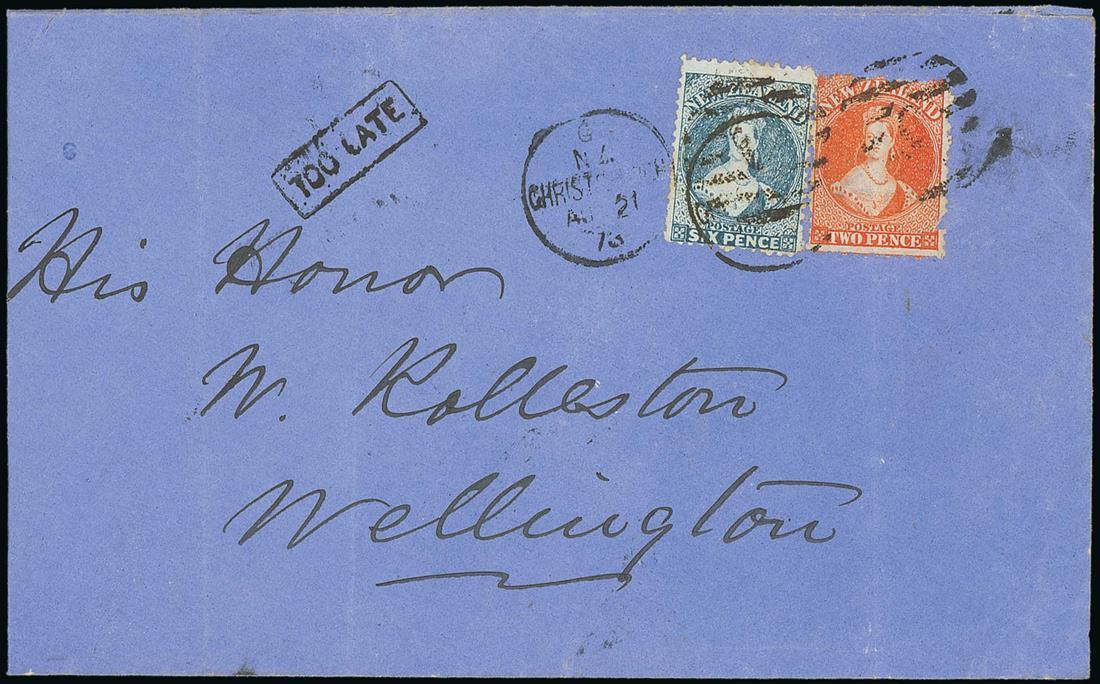 TOO LATE
NEW ZEALAND
SIX PENCE
POSTAGE
NEW ZEALAND
POSTAGE
TWO PENCE
N.Z.
21
His Honor
W. Rolleston
Wellington